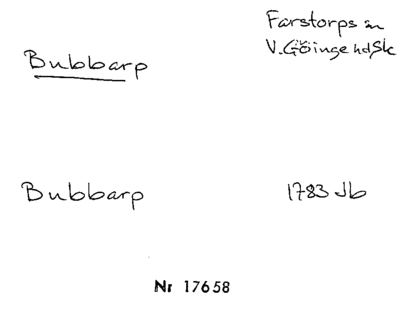 Farstorps sn
V. Göinge hd Sk
Bubbarp
Bubbarp 1783 Jb
Nr 17658